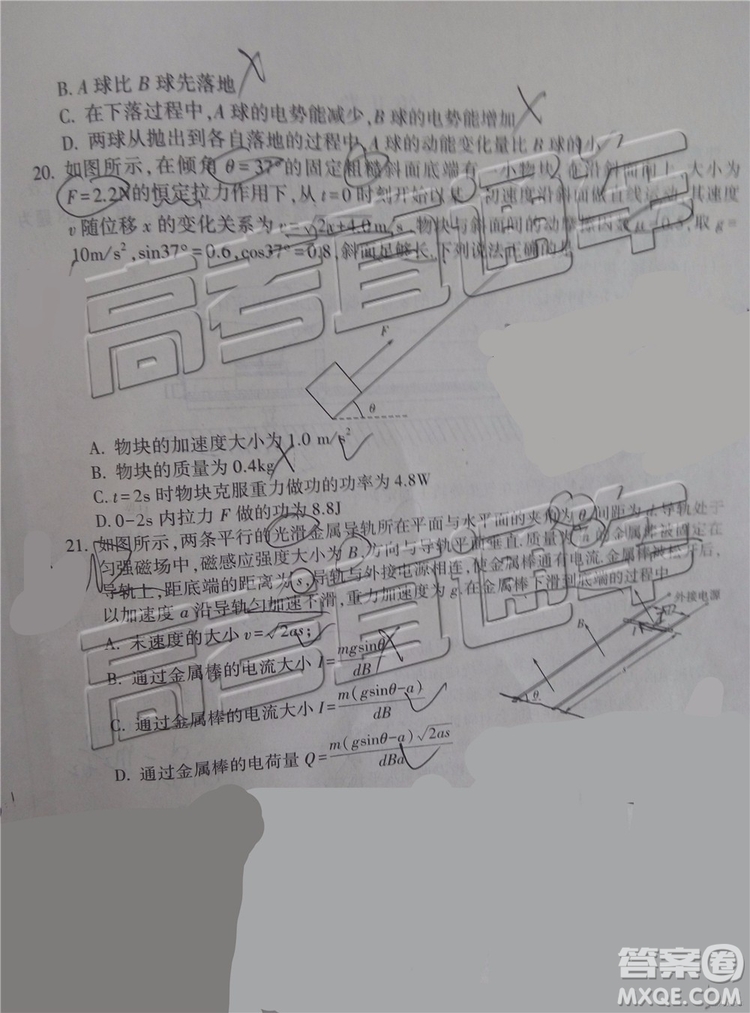 B. A 球比 B 球先落地
C. 在下落过程中,A 球的电势能减少,B 球的电势能增加
D. 两球从抛出到各自落地的过程中,A 球的动能变化量比 B 球的小
20. 如图所示,在倾角 θ=37°的固定粗糙斜面底端有一小物块,在沿斜面向上,大小为
F=2.2N的恒定拉力作用下,从 t=0 时刻开始以某一初速度沿斜面做直线运动,其速度
v 随位移 x 的变化关系为 v=√2x+4.0 m/s,物块与斜面间的动摩擦因数 μ=0.8,取 g=
10m/s²,sin37°=0.6,cos37°=0.8,斜面足够长,下列说法正确的是
F
θ
A. 物块的加速度大小为1.0 m/s²
B. 物块的质量为0.4kg
C. t=2s 时物块克服重力做功的功率为 4.8W
D. 0-2s 内拉力 F 做的功为 8.8J
21. 如图所示,两条平行的光滑金属导轨所在平面与水平面的夹角为 θ,间距为 d,导轨处于
匀强磁场中,磁感应强度大小为 B,方向与导轨平面垂直.质量为 m 的金属棒被固定在
导轨上,距底端的距离为 s,导轨与外接电源相连,使金属棒通有电流.金属棒被松开后,
以加速度 a 沿导轨匀加速下滑,重力加速度为 g.在金属棒下滑到底端的过程中
外接电源
B
θ
A. 末速度的大小 v=√2as;
B. 通过金属棒的电流大小 I=mgsinθ/dB
C. 通过金属棒的电流大小 I=m(gsinθ-a)/dB
D. 通过金属棒的电荷量 Q=m(gsinθ-a)√2as/dBa
高考直通车
高考直通车
答案圈
MXQE.COM